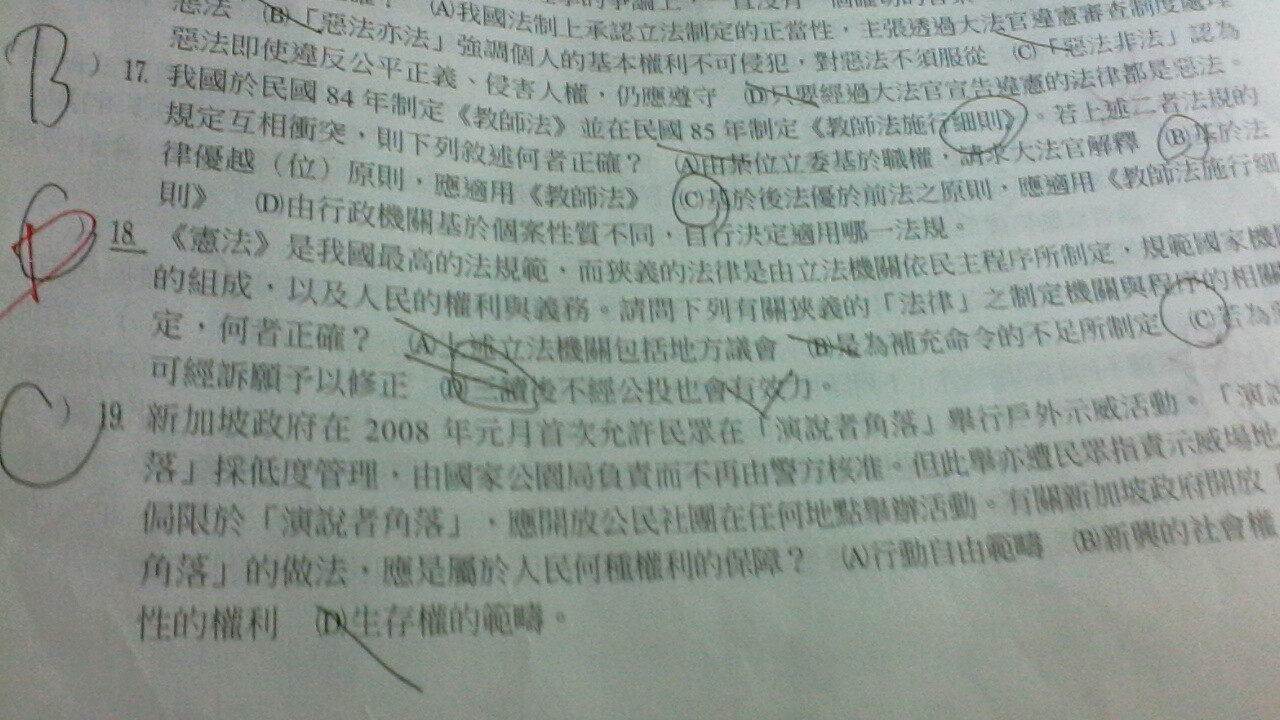 惡法 (B)「惡法亦法」強調個人的基本權利不可侵犯，對惡法不須服從 (C)「惡法非法」認為
(A)我國法制上承認立法制定的正當性，主張透過大法官違憲審查制度處理
惡法即使違反公平正義、侵害人權，仍應遵守 (D)只要經過大法官宣告違憲的法律都是惡法。
B ) 17. 我國於民國 84 年制定《教師法》並在民國 85 年制定《教師法施行細則》。若上述二者法規的
規定互相衝突，則下列敘述何者正確？ (A)由某位立委基於職權，請求大法官解釋 (B)基於法
律優越（位）原則，應適用《教師法》 (C)基於後法優於前法之原則，應適用《教師法施行細
則》 (D)由行政機關基於個案性質不同，自行決定適用哪一法規。
D ) 18. 《憲法》是我國最高的法規範，而狹義的法律是由立法機關依民主程序所制定，規範國家機
的組成，以及人民的權利與義務。請問下列有關狹義的「法律」之制定機關與程序的相關
定，何者正確？ (A)上述立法機關包括地方議會 (B)是為補充命令的不足所制定 (C)若為
可經訴願予以修正 (D)三讀後不經公投也會有效力。
C ) 19. 新加坡政府在 2008 年元月首次允許民眾在「演說者角落」舉行戶外示威活動。「演說
落」採低度管理，由國家公園局負責而不再由警方核准。但此舉亦遭民眾指責示威場地
侷限於「演說者角落」，應開放公民社團在任何地點舉辦活動。有關新加坡政府開放「
角落」的做法，應是屬於人民何種權利的保障？ (A)行動自由範疇 (B)新興的社會權
性的權利 (D)生存權的範疇。